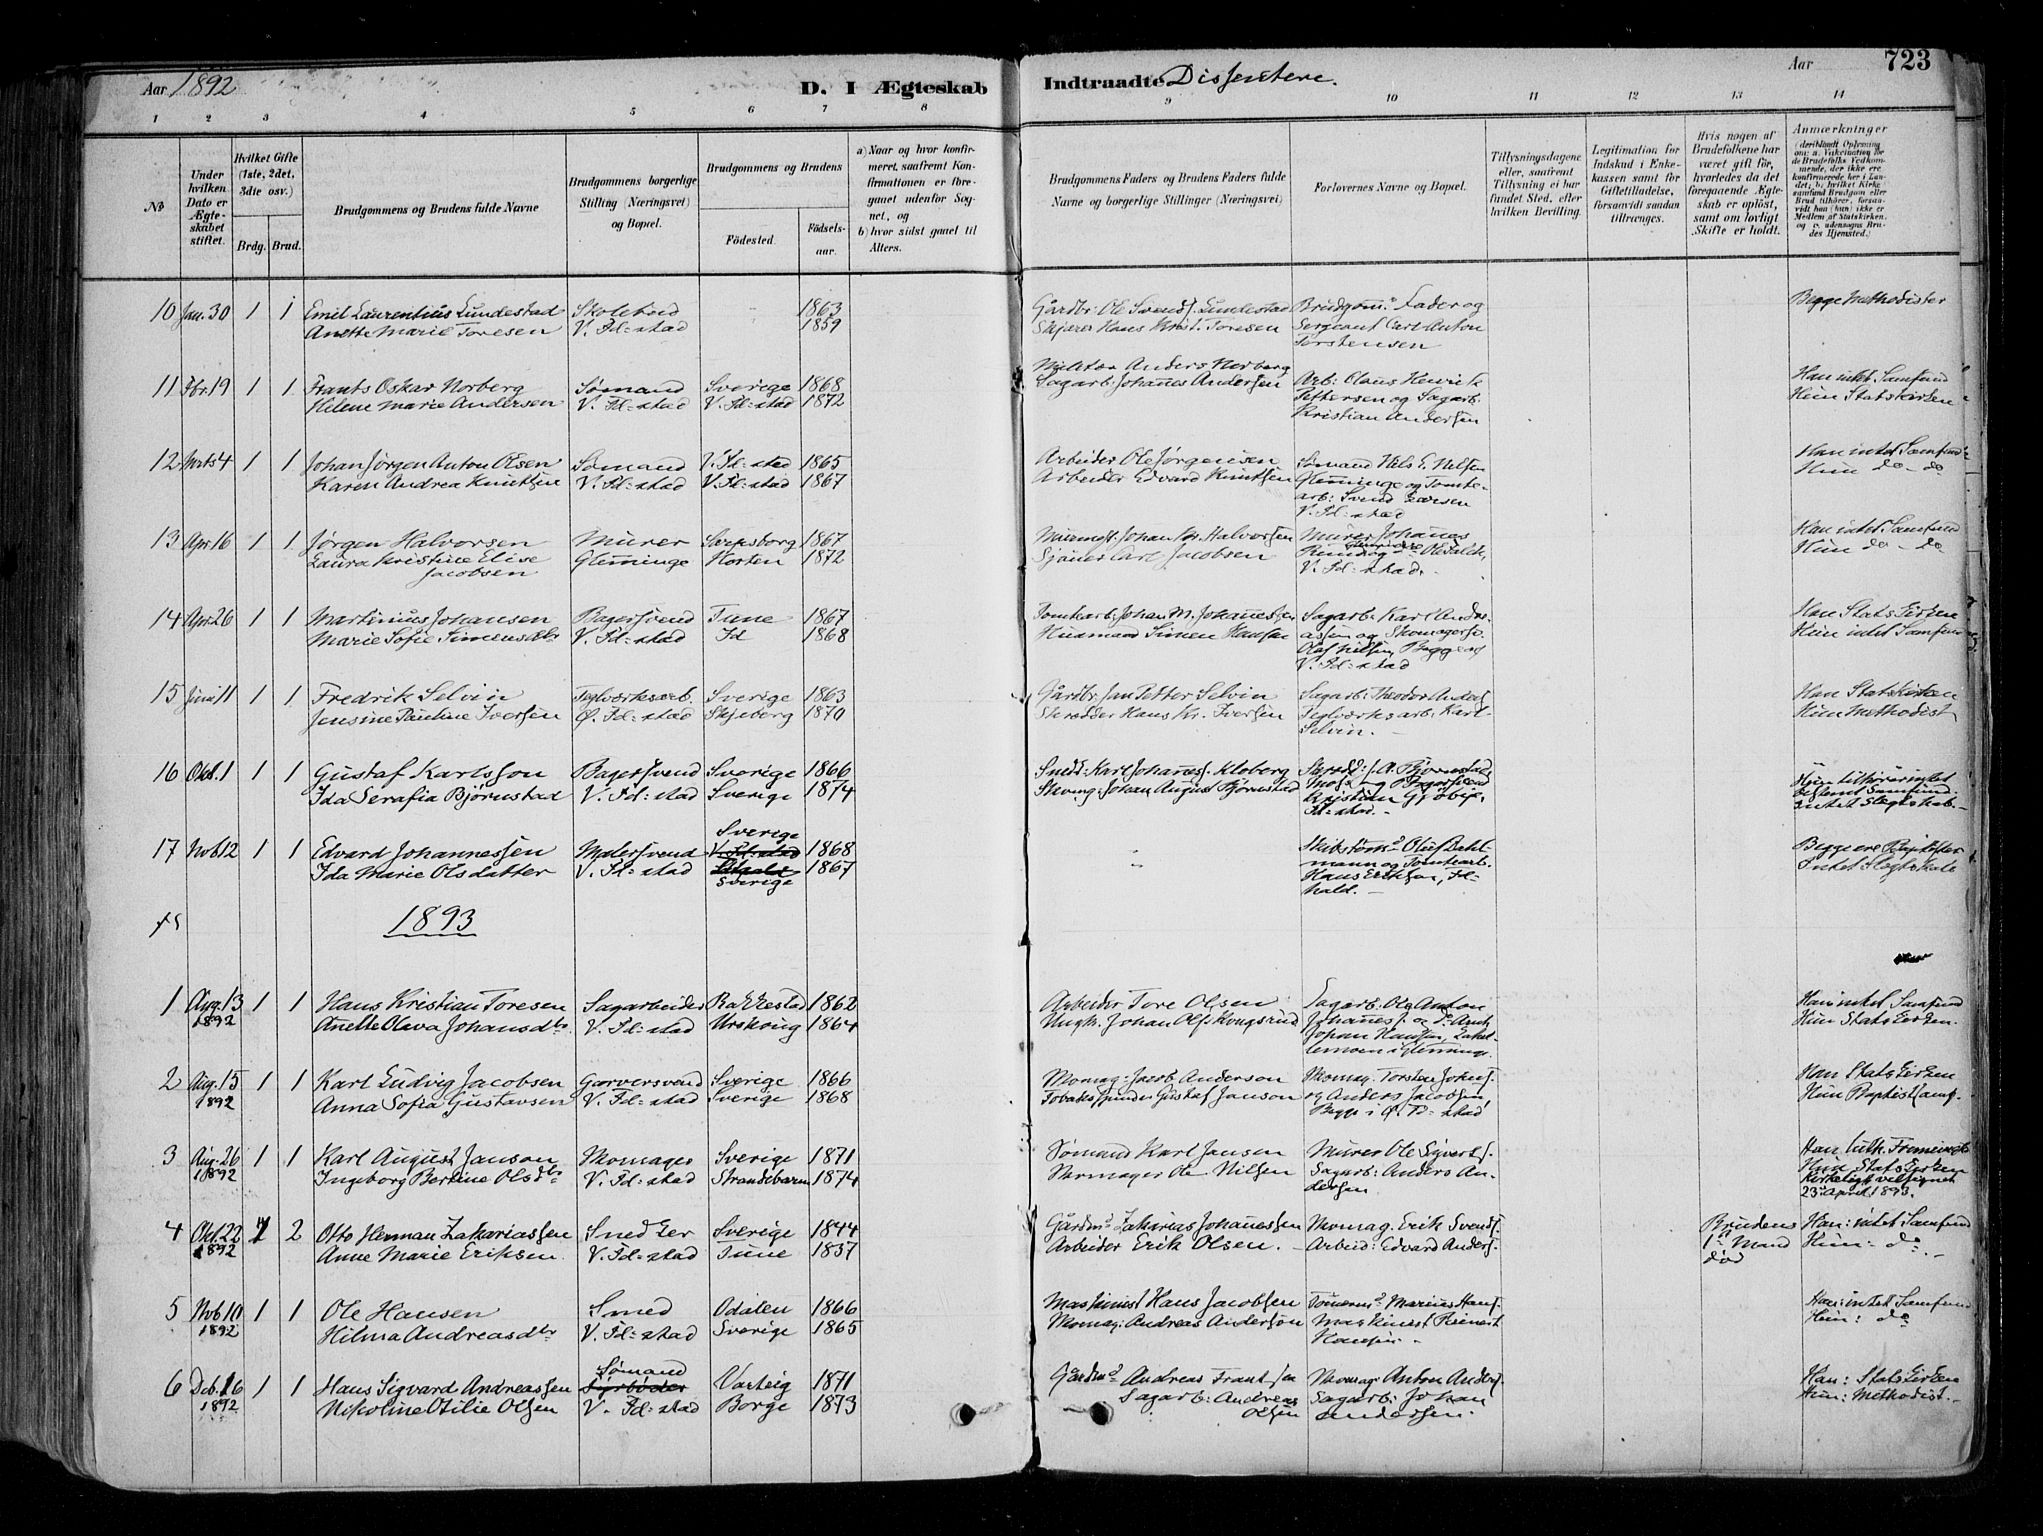 Aar 1892 D. I Ægteskab Indtraadte Dissentere. Aar 723
1 2 3 4 5 6 7 8 9 10 11 12 13 14
№
Under hvilken Dato er Ægteskabet stiftet.
Hvilket Gifte (1ste, 2det, 3die osv.)
Brdg. Brud.
Brudgommens og Brudens fulde Navne
Brudgommens borgerlige Stilling (Næringsvei) og Bopæl.
Brudgommens og Brudens
Fødested. Fødsels-aar.
a) Naar og hvor konfirmeret, saafremt Konfirmationen er foregaaet udenfor Sognet, og
b) hvor sidst gaaet til Alters.
Brudgommens Faders og Brudens Faders fulde Navne og borgerlige Stillinger (Næringsvei)
Forlovernes Navne og Bopæl.
Tillysningsdagene eller, saafremt Tillysning ei har fundet Sted, efter hvilken Bevilling.
Legitimation for Indskud i Enkekassen samt for Giftetilladelse, forsaavidt saadan tiltrænges.
Hvis nogen af Brudefolkene har været gift før, hvorledes da det foregaaende Ægteskab er opløst, samt om lovligt Skifte er holdt.
Anmærkninger
10 Jan. 30 1 1 Emil Laurentius Lundestad Skolebud 1863 Gårdbr: Ole Svends. Lundestad Brudgoms Fader og Begge Methodister
Anette Marie Toresen V. Fd:stad 1859 Skjærer Hans Krist. Toresen Sergeant Carl Anton
Torstensen
11 Fbr. 19 1 1 Frants Oskar Norberg Sømand Sverige 1868 Anders Norberg Arb: Claus Henrik Han intet Samfund
Helene Marie Andersen V. Fd:stad V. Fd:stad 1872 Sagarb: Johanes Andersen Pettersen og Sagarb: Hun Statskirken
Kristian Andersen
12 Mrts 4 1 1 Johan Jørgen Anton Olsen Sømand V. Fd:stad 1865 Arbeider Ole Jørgensen Sømand Nils E. Nilsen Han intet Samfund
Karen Andrea Knutsen V. Fd:stad V. Fd:stad 1867 Arbeider Edvard Knutsen Glemminge og Tomte- Hun do - do
arb: Svend Larsen
V. Fd:stad
13 Apr. 16 1 1 Jørgen Halvorsen Murer Sarpsborg 1867 Murmst. Johan Kr. Halvorsen Murer Johanes Han intet Samfund
Laura Kristine Elise Glemminge Horten 1872 Sjauer Carl Jacobsen Hun do - do
Jacobsen V. Fd:stad.
14 Apr. 26 1 1 Martinius Johansen Bagersvend Tune 1867 Tomtearb: Johan M. Johanesen Sagarb: Karl Andre- Han Statskirken
Marie Sofie Simensdtr V. Fd:stad Id 1868 Husmand Simen Hansen assen og Skomagersv. Hun intet Samfund
Olaf Nilsen, Begge af
V. Fd:stad
15 Juni 11 1 1 Fredrik Selvin Teglværksarb. Sverige 1863 Gårdbr. Jan Petter Selvin Sagarb: Theodor Anders. Han Statskirken
Jensine Pauline Iversen Ø. Fd:stad Skjeberg 1870 Skrædder Hans Kr. Iversen Teglværksarb: Karl Hun Methodist
Selvin.
16 Okt. 1 1 1 Gustaf Karlsson Bagersvend Sverige 1866 Snedk: Karl Johaness. Kloberg Skrædd: J. A. Bjørnestad
Ida Serafia Bjørnstad V. Fd:stad Sverige 1874 Johan August Bjørnstad Moss og Bagersvend bestemt Samfund.
Kristian Gjøbye, intet Slægtskab.
Fd:stad.
17 Nvb 12 1 1 Edvard Johannessen Malersvend Sverige 1868 " Skibstømr. Oluf Dahl- Begge ere Baptister
Ida Marie Olsdatter V. Fd:stad Sverige 1867 mann og Tomtearb. Intet Slægtskab
Hans Eriksen, Fd-
hald.
1893
1 Aug. 13 1892 1 1 Hans Kristian Toresen Sagarbeider Rakkestad 1862 Arbeider Tore Olsen Sagarb. Ole Anton Han intet Samfund
Anette Olava Johansdtr V. Fd:stad Urskoug 1864 Johan Ols. Kongsrud Johaness. og Hun Statskirken.
Johan Hansen,
i Glemminge.
2 Aug. 15 1892 1 1 Karl Ludvig Jacobsen Garversvend Sverige 1866 Skomag: Jacob Anderson Skomag: Torsten Johns. Han Statskirken
Anna Sofia Gustavsen V. Fd:stad Sverige 1868 Tobaksspinder Gustaf Janson og Anders Jacobsen, Hun Baptistsamf.
Begge i Ø. Fd:stad
3 Aug. 26 1892 1 1 Karl August Janson Skomager Sverige 1871 Sømand Karl Jansen Murer Ole Sigvarts. Han luth. Frimenigh.
Ingeborg Bertine Olsdtr V. Fd:stad Strandebarm 1874 Skomager Ole Nilsen Sagarb: Anders An- Hun Statskirken
dersen Kirkeligt velsignet
23 April 1893.
4 Okt. 22 1892 1 2 Otto Herman Zakariassen Snedker Sverige 1844 Gårdm. Zakarias Johanessen Skomag. Erik Svends. Brudens Han: intet Samfund
Anne Marie Eriksen V. Fd:stad Tune 1837 Arbeider Erik Olsen. Arbeid: Edvard Anders. 1st Mand Hun: do
død
5 Nvb 10 1892 1 1 Ole Hansen Smed Odalen 1866 Maskinist Hans Jacobsen Tømerm. Marius Hans. Han: intet Samfund
Hilma Andreasdtr V. Fd:stad Sverige 1865 Skomag: Andreas Anderson Maskinist Reinert Hun: do
Hansen.
6 Dcb. 16 1892 1 1 Hans Sigvard Andreassen Sømand Fyrbøder Varteig 1871 Gårdm. Andreas Frantsen Skomag: Anton Anders. Han: Statskirken
Nikoline Otilie Olsen V. Fd:stad Borge 1873 Sagarb: Andreas Olsen Sagarb: Johan Andersen. Hun: Methodist.